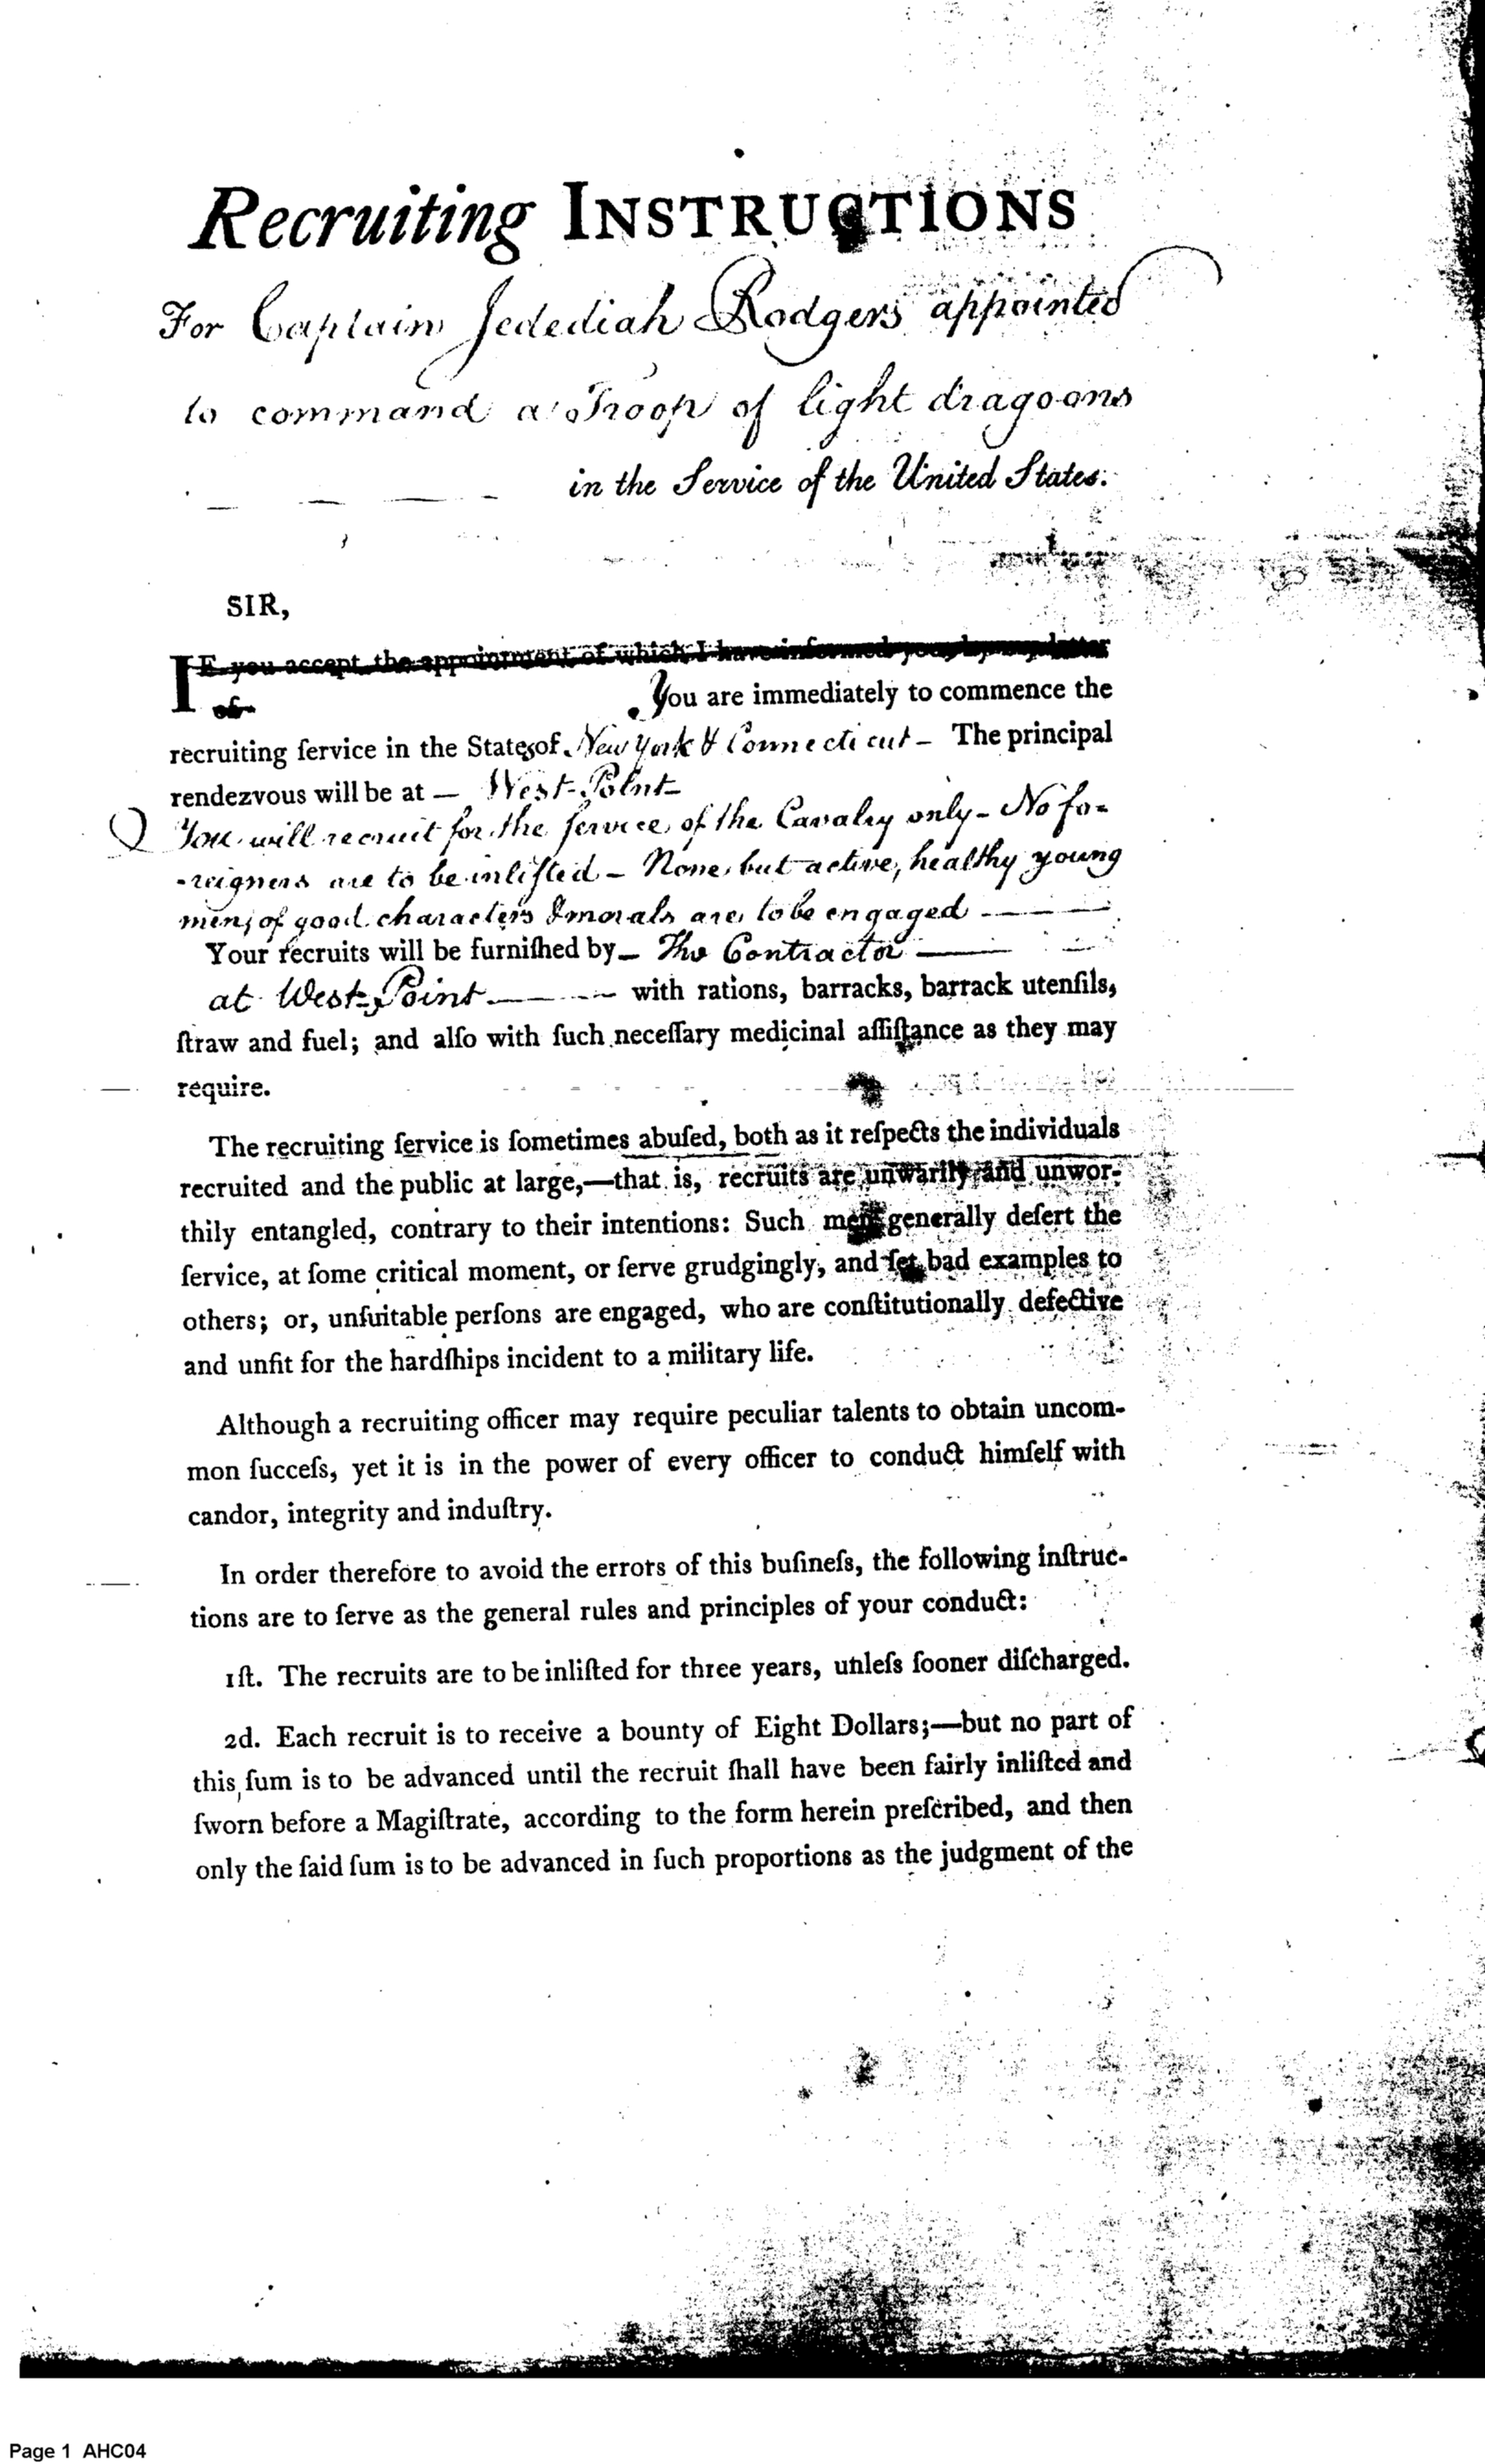 Recruiting INSTRUCTIONS
For Captain Jedediah Rodgers appointed
to command a Troop of light dragoons
in the Service of the United States.
SIR,
IF you accept the appointment of which I have informed you by my letter
of You are immediately to commence the
recruiting ſervice in the States of New York & Connecticut – The principal
rendezvous will be at — West-Point–
You will recruit for the ſervice of the Cavalry only – No fo-
-reigners are to be inliſted – None but active, healthy young
men, of good characters & morals are to be engaged ———
Your recruits will be furniſhed by – The Contractor ———
at West-Point ——— with rations, barracks, barrack utenſils,
ſtraw and fuel; and alſo with ſuch neceſſary medicinal aſſiſtance as they may
require.
The recruiting ſervice is ſometimes abuſed, both as it reſpects the individuals
recruited and the public at large,—that is, recruits are unwarily and unwor-
thily entangled, contrary to their intentions: Such men generally deſert the
ſervice, at ſome critical moment, or ſerve grudgingly, and ſet bad examples to
others; or, unſuitable perſons are engaged, who are conſtitutionally defective
and unfit for the hardſhips incident to a military life.
Although a recruiting officer may require peculiar talents to obtain uncom-
mon ſucceſs, yet it is in the power of every officer to conduct himſelf with
candor, integrity and induſtry.
In order therefore to avoid the errors of this buſineſs, the following inſtruc-
tions are to ſerve as the general rules and principles of your conduct:
1ſt. The recruits are to be inliſted for three years, unleſs ſooner diſcharged.
2d. Each recruit is to receive a bounty of Eight Dollars;—but no part of
this ſum is to be advanced until the recruit ſhall have been fairly inliſted and
ſworn before a Magiſtrate, according to the form herein preſcribed, and then
only the ſaid ſum is to be advanced in ſuch proportions as the judgment of the
Page 1 AHC04